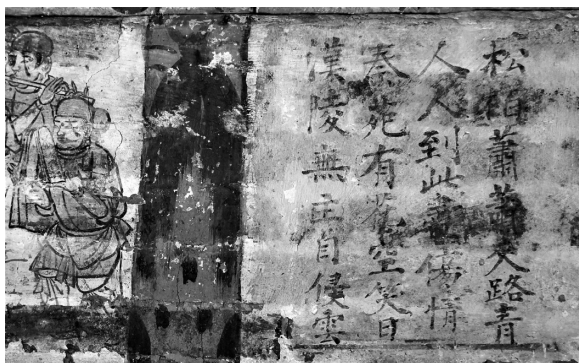 松柏蕭蕭夾路青
人人到此盡傷情
秦苑有花空笑日
漢陵無主自侵雲